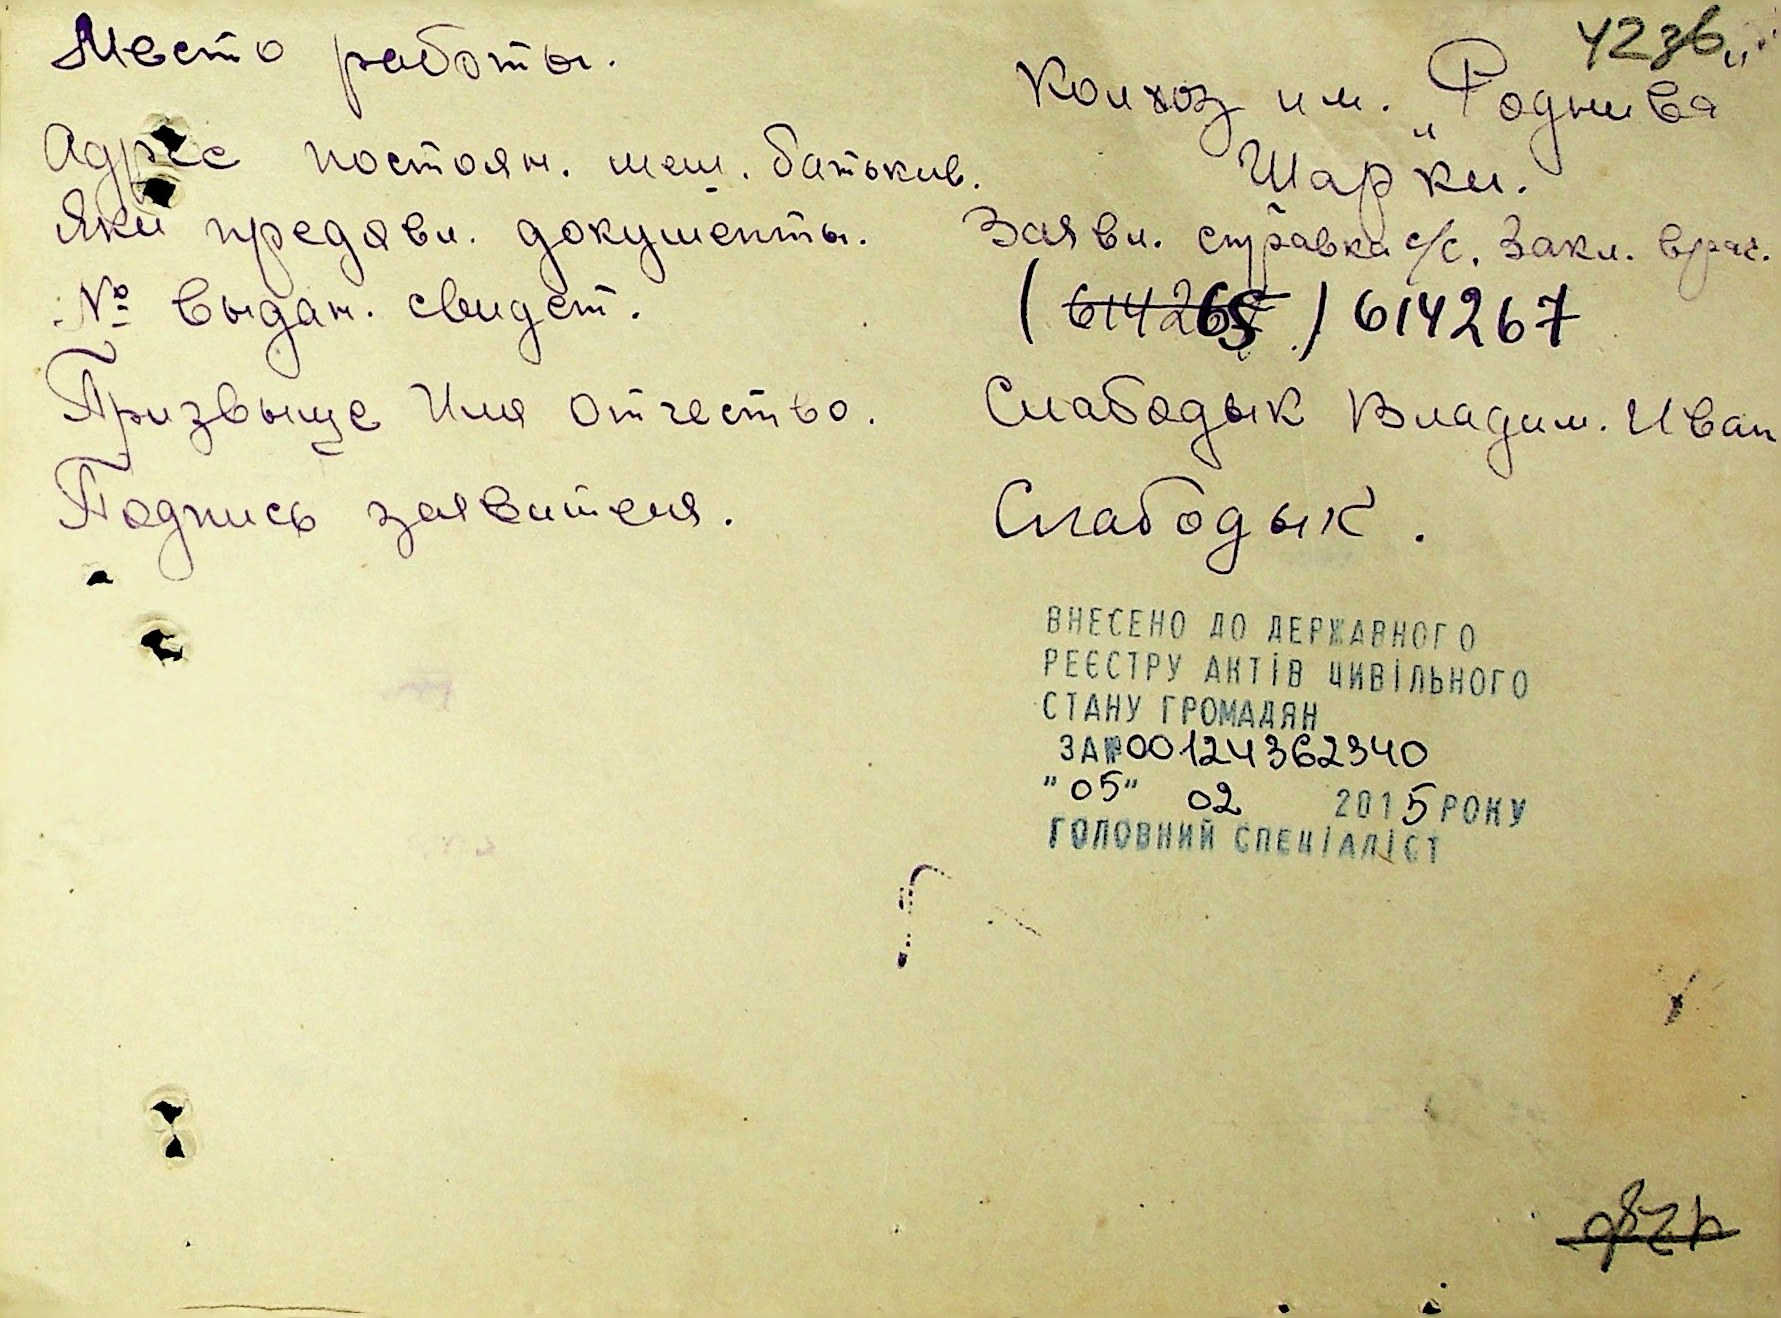 423в
Место работы. Колхоз им. „Роднива"
Адрес постоян. меш. батькив. Шарки.
Яки предявл. документы. Заявл. справка с/с. Закл. врач.
№ выдан. свидет. (614265) 614267
Призвыще Имя Отчество. Слабодык Владим. Иван
Подпись заявителя. Слабодык.
ВНЕСЕНО ДО ДЕРЖАВНОГО
РЕЄСТРУ АКТІВ ЦИВІЛЬНОГО
СТАНУ ГРОМАДЯН
ЗА № 00124362340
"05" 02 2015 РОКУ
ГОЛОВНИЙ СПЕЦІАЛІСТ